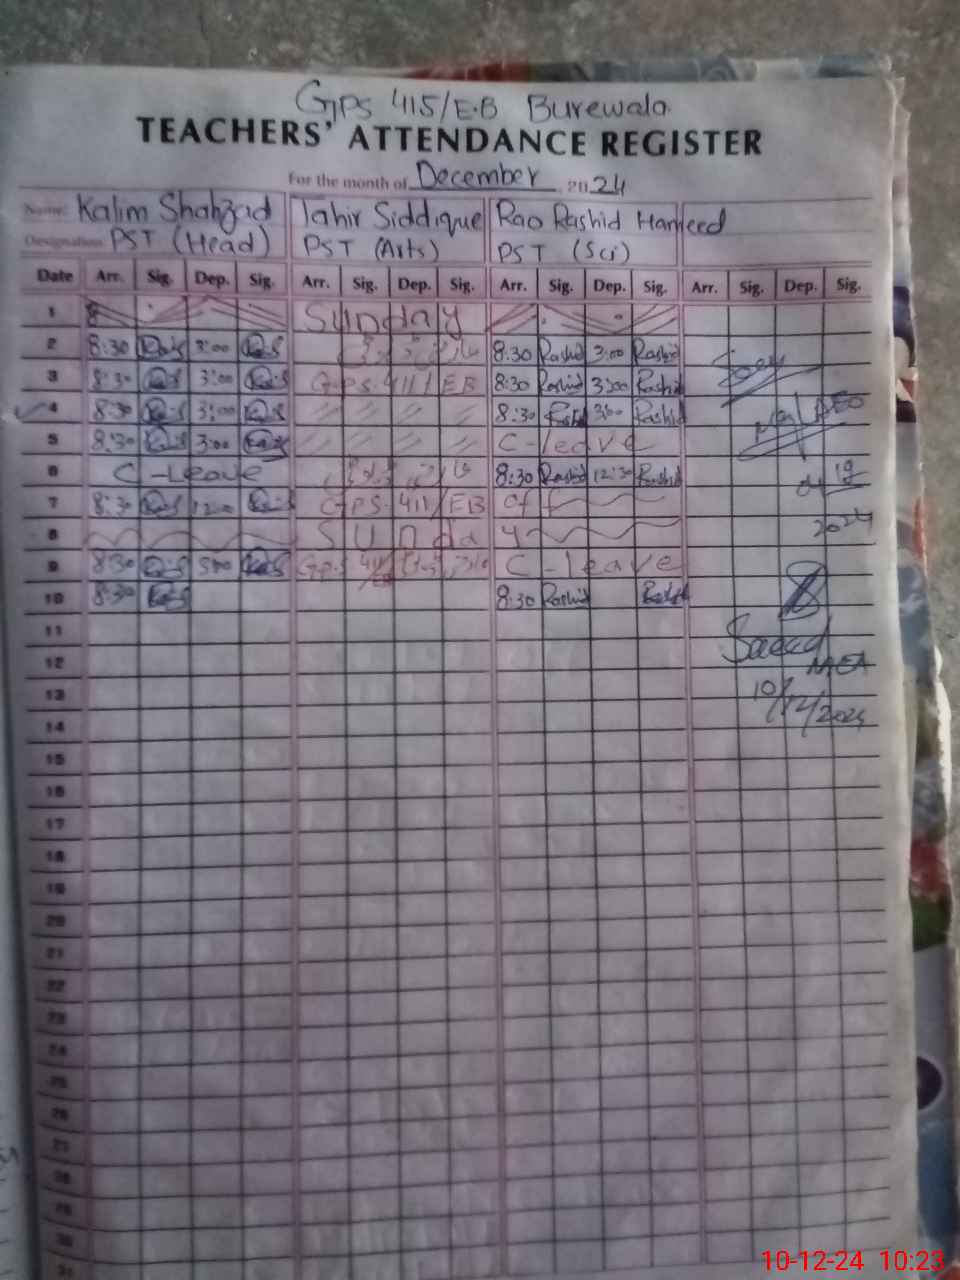 GPS 415/E.B Burewala
TEACHERS' ATTENDANCE REGISTER
For the month of December, 2024
Name: Kalim Shahzad Tahir Siddique Rao Rashid Hameed
Designation: PST (Head) PST (Arts) PST (Sci)
Date Arr. Sig. Dep. Sig. Arr. Sig. Dep. Sig. Arr. Sig. Dep. Sig. Arr. Sig. Dep. Sig.
1 Sunday
2 8:30 3:00 8:30 Rashid 3:00 Rashid
3 8:30 3:00 G.P.S 411/EB 8:30 Rashid 3:00 Rashid
4 8:30 3:00 8:30 3:00 Rashid
5 8:30 3:00 C-leave
6 C-Leave 8:30 Rashid 12:30 Rashid
7 8:30 12:00 GPS 411/EB off
8 Sunday
2024
9 8:30 G.P.S C-leave
10 8:30 8:30 Rashid
11
Saeed
12 MEA
13 10/12/2024
14
15
16
17
18
19
20
21
22
23
24
25
26
27
28
29
30
31
10-12-24 10:23